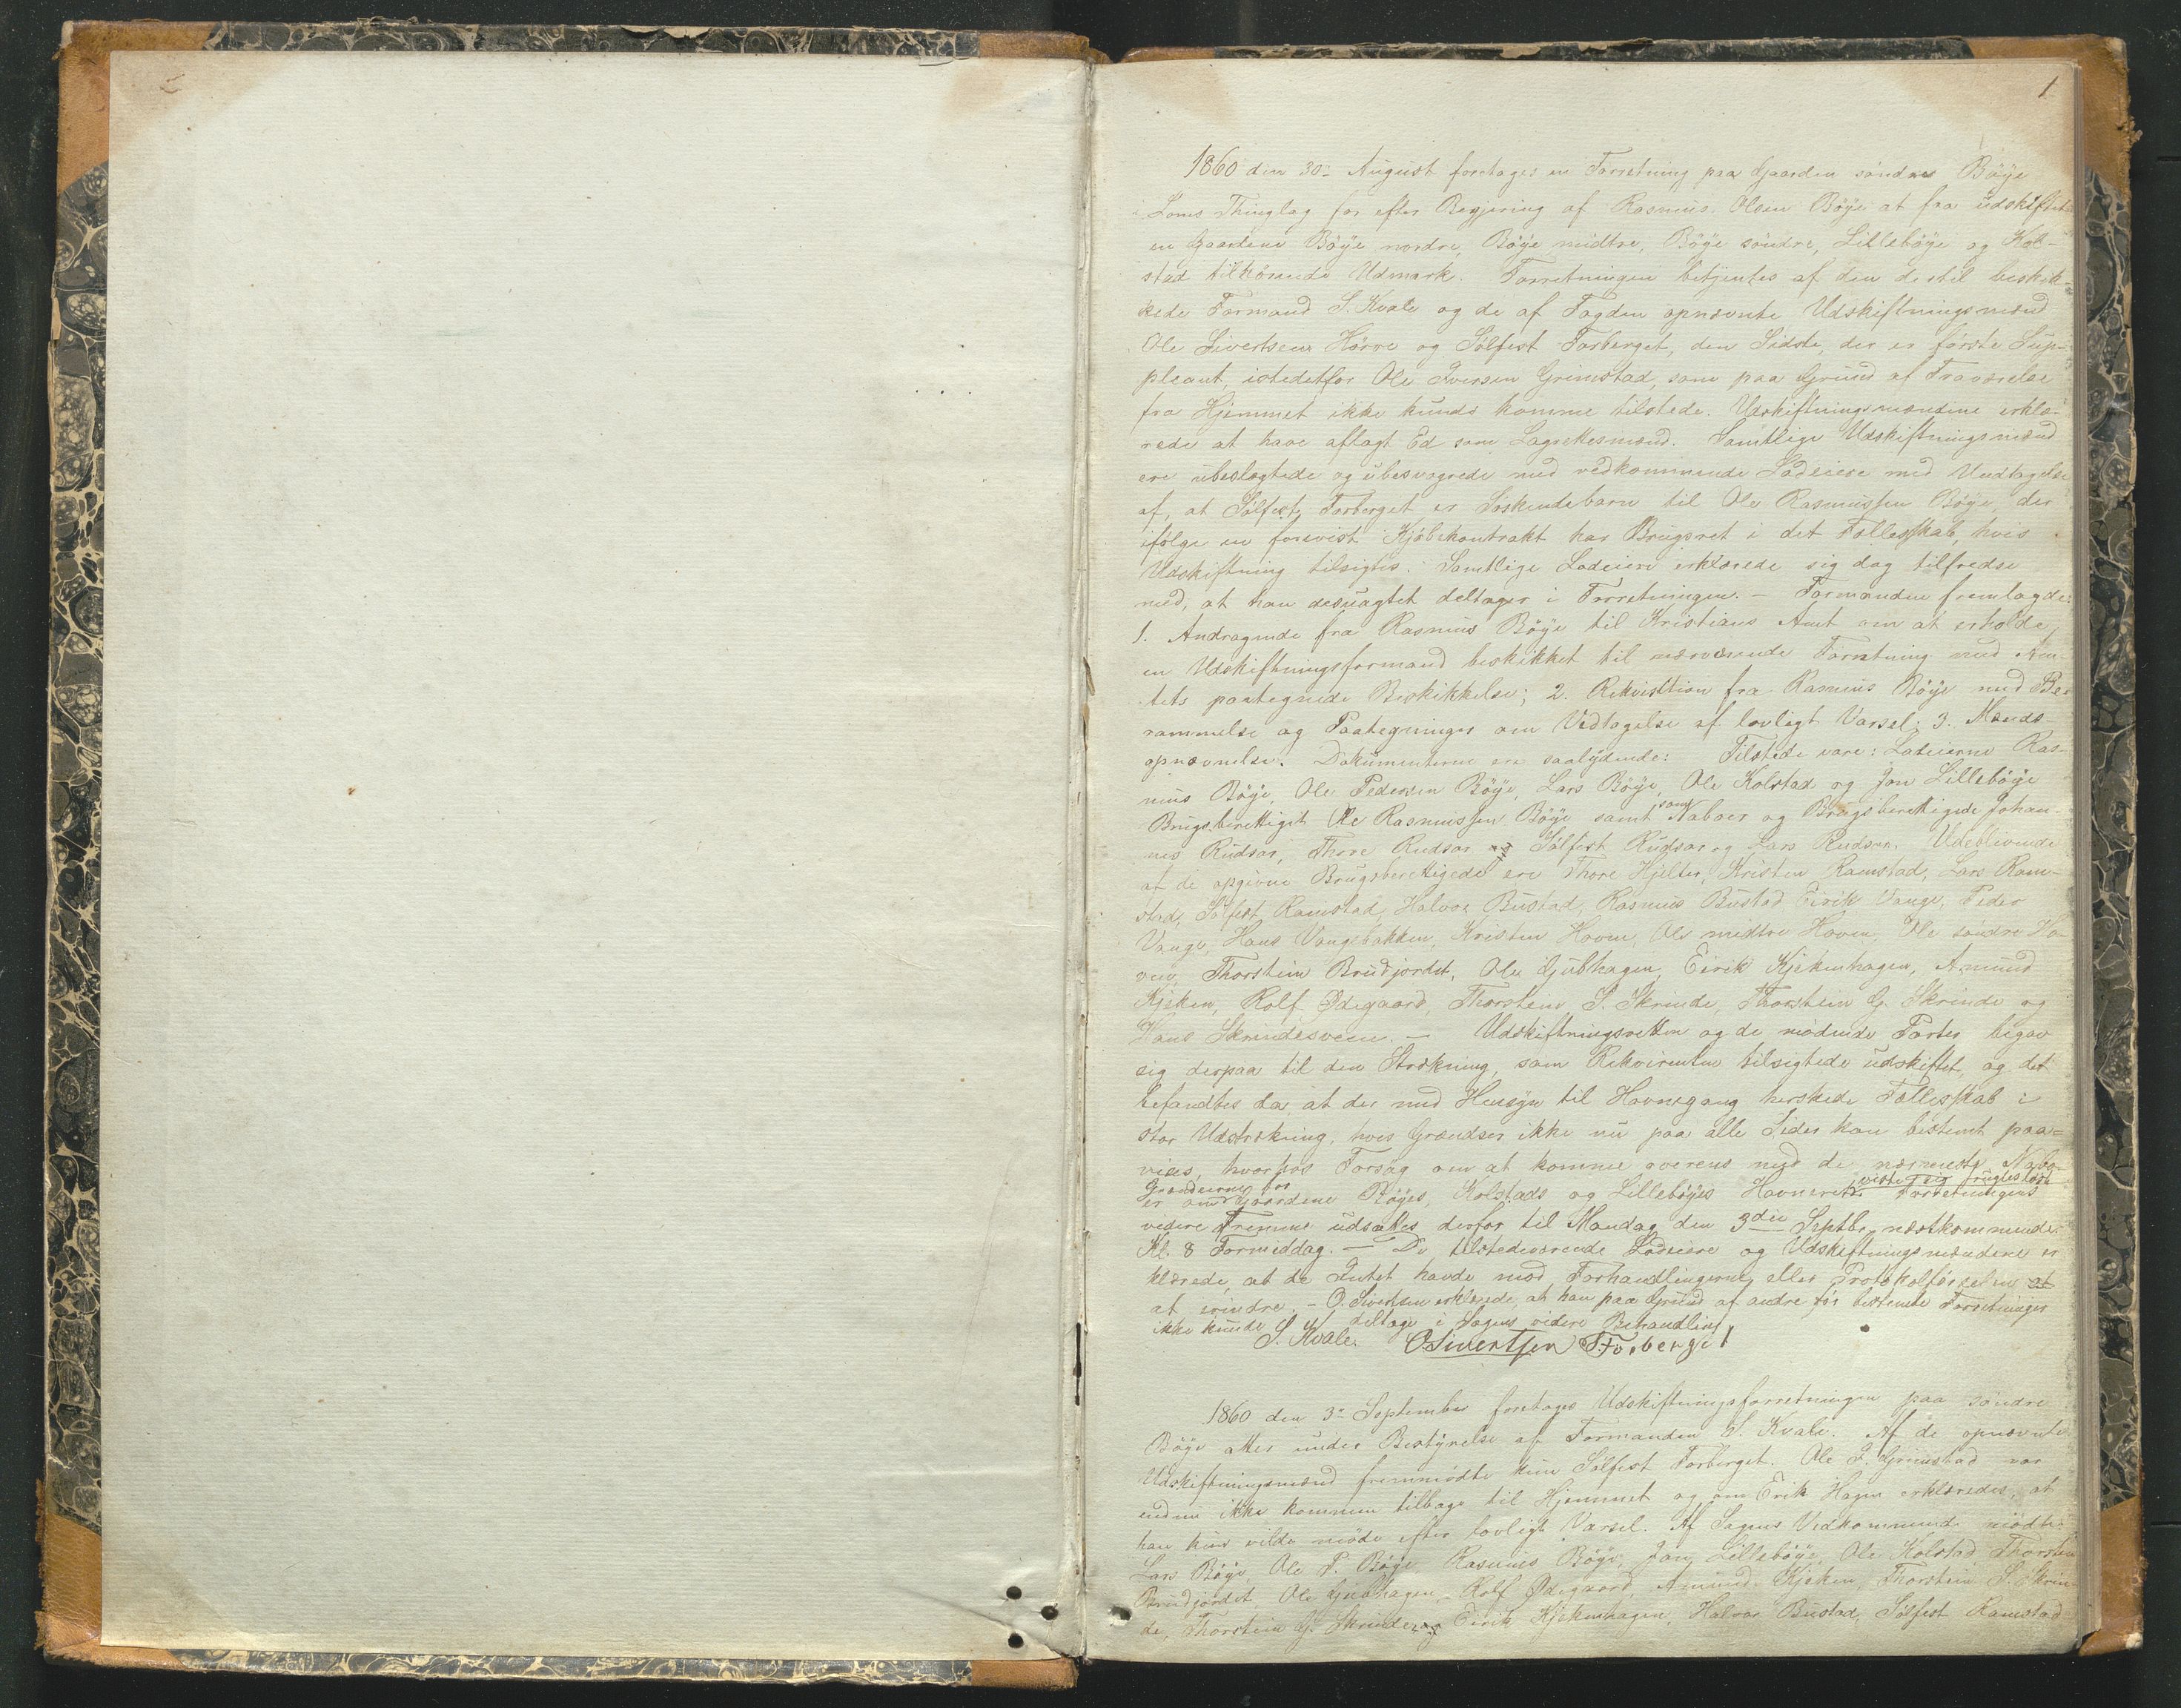 1
1860 den 30te August foretages en Forretning paa Gaarden söndre Böÿe
i Loms Thinglag for efter Begjering af Rasmus Olsen Böÿe at faa udskiftet
en Gaardene Böÿe nordre, Böÿe midtre, Böÿe söndre, Lilleböÿe og Kol-
stad tilhörende Udmark. Forretningen betjentes af den dertil beskik-
kede Formand S. Kvale og de af Fogden opnævnte Udskiftningsmænd
Ole Sivertsen Hörve og Sölfest Forberget, den Sidste, der er förste Sup-
pleant, istedetfor Ole Iversen Grimstad, som paa Grund af Fraværelse
fra Hjemmet ikke kunde komme tilstede. Udskiftningsmændene erklæ-
rede at have aflagt Ed som Lagrettesmænd. Samtlige Udskiftningsmænd
ere ubeslægtede og ubesvogrede med vedkommende Lodeiere med Undtagelse
af, at Sölfest Forberget er Söskendebarn til Ole Rasmussen Böÿe, der
ifölge en forevist Kjöbekontrakt har Brugsret i det Fællesskab, hvis
Udskiftning tilsigtes. Samtlige Lodeiere erklærede sig dog tilfredse
med, at han desuagtet deltager i Forretningen. – Formanden fremlagde:
1. Andragende fra Rasmus Böÿe til Kristians Amt om at erholde
en Udskiftningsformand beskikket til nærværende Forretning med Am-
tets paategnede Beskikkelse; 2. Rekvisition fra Rasmus Böÿe med Be-
rammelse og Paategninger om Vedtagelse af lovligt Varsel; 3. Mænds-
opnævnelse. Dokumenterne ere saalÿdende: Tilstede vare: Lodeierne Ras-
mus Böÿe, Ole Pedersen Böÿe, Lars Böÿe, Ole Kolstad og Jon Lilleböÿe
Brugsberettiget Ole Rasmussen Böÿe samt som Naboer og Brugsberettigede Johan-
nes Rudsar, Thore Rudsar og Sölfest Rudsar og Lars Rudsar. Udeblivende
af de opgivne Brugsberettigede ere Thore Hjelter, Kristen Ramstad, Lars Ram-
stad, Sölfest Ramstad, Halvor Bustad, Rasmus Bustad Eirik Vange, Peder
Vange, Hans Vangebakken, Kristen Hoven, Ole midtre Hoven, Ole söndre Ho-
ven, Thorstein Brudjordet, Ole Gjubhagen, Eirik Kjekenhagen, Amund
Kjeken, Rolf Ödegaard, Thorstein S. Skrinde, Thorstein G. Skrinde og
Hans Skrindesveen. – Udskiftningsretten og de mödende Parter begav
sig derpaa til den Strækning, som Rekvirenten tilsigtede udskiftet, og det
befandtes da, at der med Hensÿn til Havnegang herskede Fællesskab i
stor Udstrækning, hvis Grændser ikke nu paa alle Sider kan bestemt paa-
vises, hvorhos Forsög om at komme overens med de nærmeste Nabo-
er om Grændserne for Gaardene Böÿes, Kolstads og Lilleböÿes Havneret viste sig frugteslöst. Forretningens
videre Fremme udsættes derfor til Mandag den 3die Septbr næstkommende
Kl. 8 Formiddag. – De tilstedeværende Lodeiere og Udskiftningsmændene er-
klærede, at de Intet havde mod Forhandlingerne eller Protokolförselen at
at erindre. – O. Sivertsen erklærede, at han paa Grund af andre för bestemte Forretninger
ikke kunde deltage i Sagens videre Behandling
S. Kvale. OSivertsen SForberget
1860 den 3te September foretages Udskiftningsforretningen paa söndre
Böÿe atter under Bestÿrelse af Formanden S. Kvale. Af de opnævnte
Udskiftningsmænd fremmödte kun Sölfest Forberget. Ole I. Grimstad var
endnu ikke kommen tilbage til Hjemmet og om Erik Hagen erklæredes, at
han kun vilde möde efter lovligt Varsel. Af Sagens Vedkommende mödte
Lars Böÿe, Ole P. Böÿe, Rasmus Böÿe, Jon Lilleböÿe, Ole Kolstad, Thorstein
Brudjordet, Ole Gjubhagen, Rolf Ödegaard, Amund Kjeken, Thorstein S. Skrin-
de, Thorstein G. Skrinde og Eirik Kjekenhagen, Halvor Bustad, Sölfest Ramstad